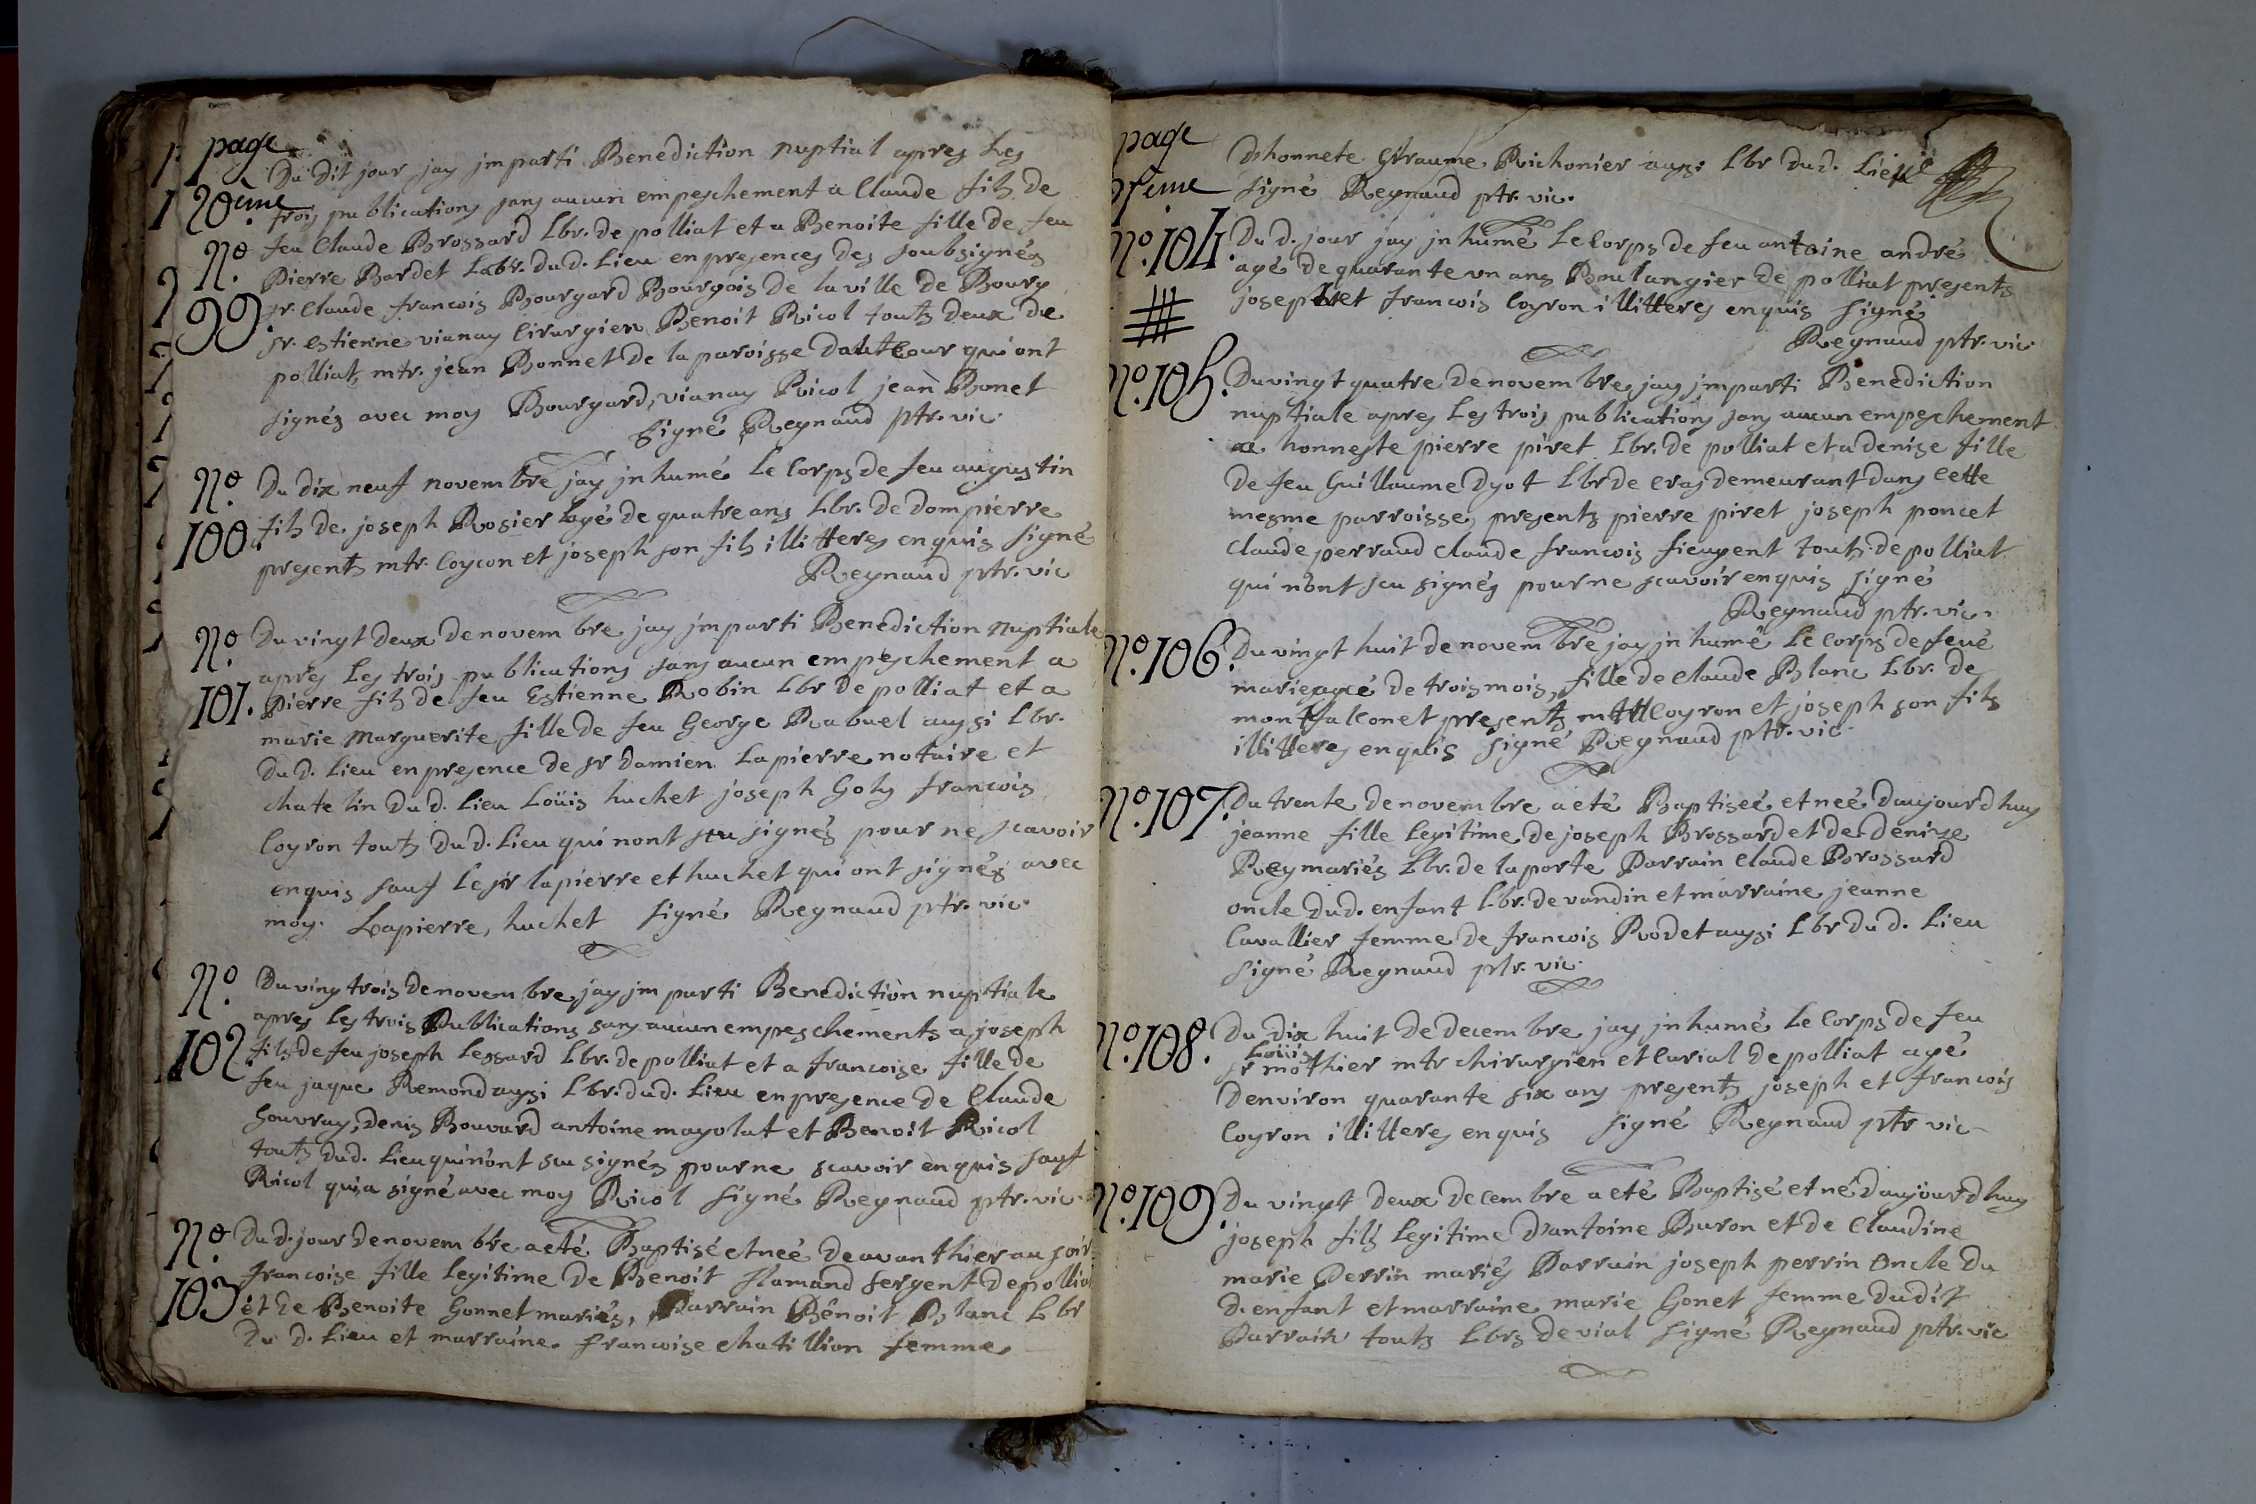 page
20eme
No
99.
Du dit jour jay jmparti Benediction nuptial apres les
trois publications sans aucun empeschement a Claude fils de
feu Claude Brossard Lbr. de polliat et a Benoite fille de feu
Pierre Bardet Labr. dud. Lieu en presences des soubsignés
sr. Claude francois Bourgard Bourgois de la ville de Bourg
sr. estienne vianay Cirurgien Benoit Ricol touts deux de
polliat, mtr. jean Bonnet de la paroisse dattour qui ont
signés avec moy Bourgard, vianay Ricol jean Bonet
Signé Reynaud ptr. vic
No
100.
Du dix neuf novembre jay jnhumé Le Corps de feu augustin
fils de joseph Rosier agé de quatre ans Lbr. de dompierre
presents mtr. Coyron et joseph son fils illitteres enquis signé
Reynaud ptr. vic
No
101.
Du vingt deux de novembre jay jmparti Benediction Nuptiale
apres Les trois publications sans aucun empeschement a
Pierre fils de feu Estienne Robin Lbr de polliat et a
marie Marguerite fille de feu George Rabuel aussi Lbr.
dud. Lieu en presence de sr damien Lapierre notaire et
chatelin dud. Lieu Loüis huchet joseph Goly francois
Coyron touts dud. Lieu qui nont sceu signés pour ne scavoir
enquis sauf Le sr lapierre et huchet qui ont signés avec
moy. Lapierre, huchet signé Reynaud ptr. vic.
No
102
Du ving trois de novembre jay jmparti Benediction nuptiale
apres Les trois Publications sans aucun empeschements a joseph
fils de feu joseph Lessard Lbr. de polliat et a francoise fille de
feu jaque Remond aussi Lbr. dud. Lieu en presence de Claude
Gouvray, denis Bouvard antoine mayolat et Benoit Ricol
touts dud. Lieu qui n'ont sceu signés pour ne scavoir enquis sauf
Ricol qui a signé avec moy Ricol signé Reynaud ptr. vic.
No
103
Du d. jour de novembre a eté Baptisé et neé de avanthier au soir
francoise fille legitime de Benoit flamand sergent de pollia
et de Benoite Gonnet mariés, Parrain Benoit Blanc Lbr
du d. Lieu et marraine francoise chatillion femme
page
Dhonnete Giraume Richonier aussi Lbr dud. Lieu
signé Reynaud ptr. vic.
No. 104.
Du d. jour jay jnhumé Le Corps de feu antoine andré
agé de quarante un ans Boulangier de polliat presents
joseph et francois Coyron illitteres enquis signé
Reynaud ptr. vic
No. 105.
Du vingt quatre de novembre jay jmparti Benediction
nuptiale apres Les trois publications sans aucun empeschement
a honneste pierre piret Lbr. de polliat et a denise fille
de feu Guillaume dyot Lbr de cras demeurant dans cette
mesme parroisse, presents pierre piret joseph poncet
claude perraud claude francois fieugent touts de polliat
qui n'ont sceu signés pour ne scavoir enquis signé
Reynaud ptr. vic.
No. 106.
Du vingt huit de novembre jay jnhumé Le Corps de feué
marie agé de trois mois, fille de claude Blanc Lbr. de
montfalconet presents mtr Coyron et joseph son fils
illitteres enquis signé Reynaud ptr. vic.
No. 107.
Du trente de novembre a eté Baptiseé et neé daujourdhuy
jeanne fille legitime de joseph Brossard et de denise
Rey mariés Lbr. de la porte Parrain claude Brossard
oncle dud. enfant Lbr. de vandin et marraine jeanne
Cavallier femme de francois Rodet aussi Lbr du d. Lieu
signé Reynaud ptr. vic.
No. 108.
Du dix huit de decembre jay jnhumé Le Corps de feu
Loüis
sr mothier mtr chirurgien et Curial de polliat agé
Denviron quarante six ans presents joseph et francois
Coyron illitteres enquis signé Reynaud ptr vic
No. 109.
Du vingt deux decembre a eté Baptisé et né daujourdhuy
joseph fils legitime d'antoine Buron et de Claudine
marie Perrin mariés Parrain joseph perrin Oncle du
d. enfant et marraine marie Gonet femme dudit
Parrain touts Lbrs de vial signé Reynaud ptr. vic